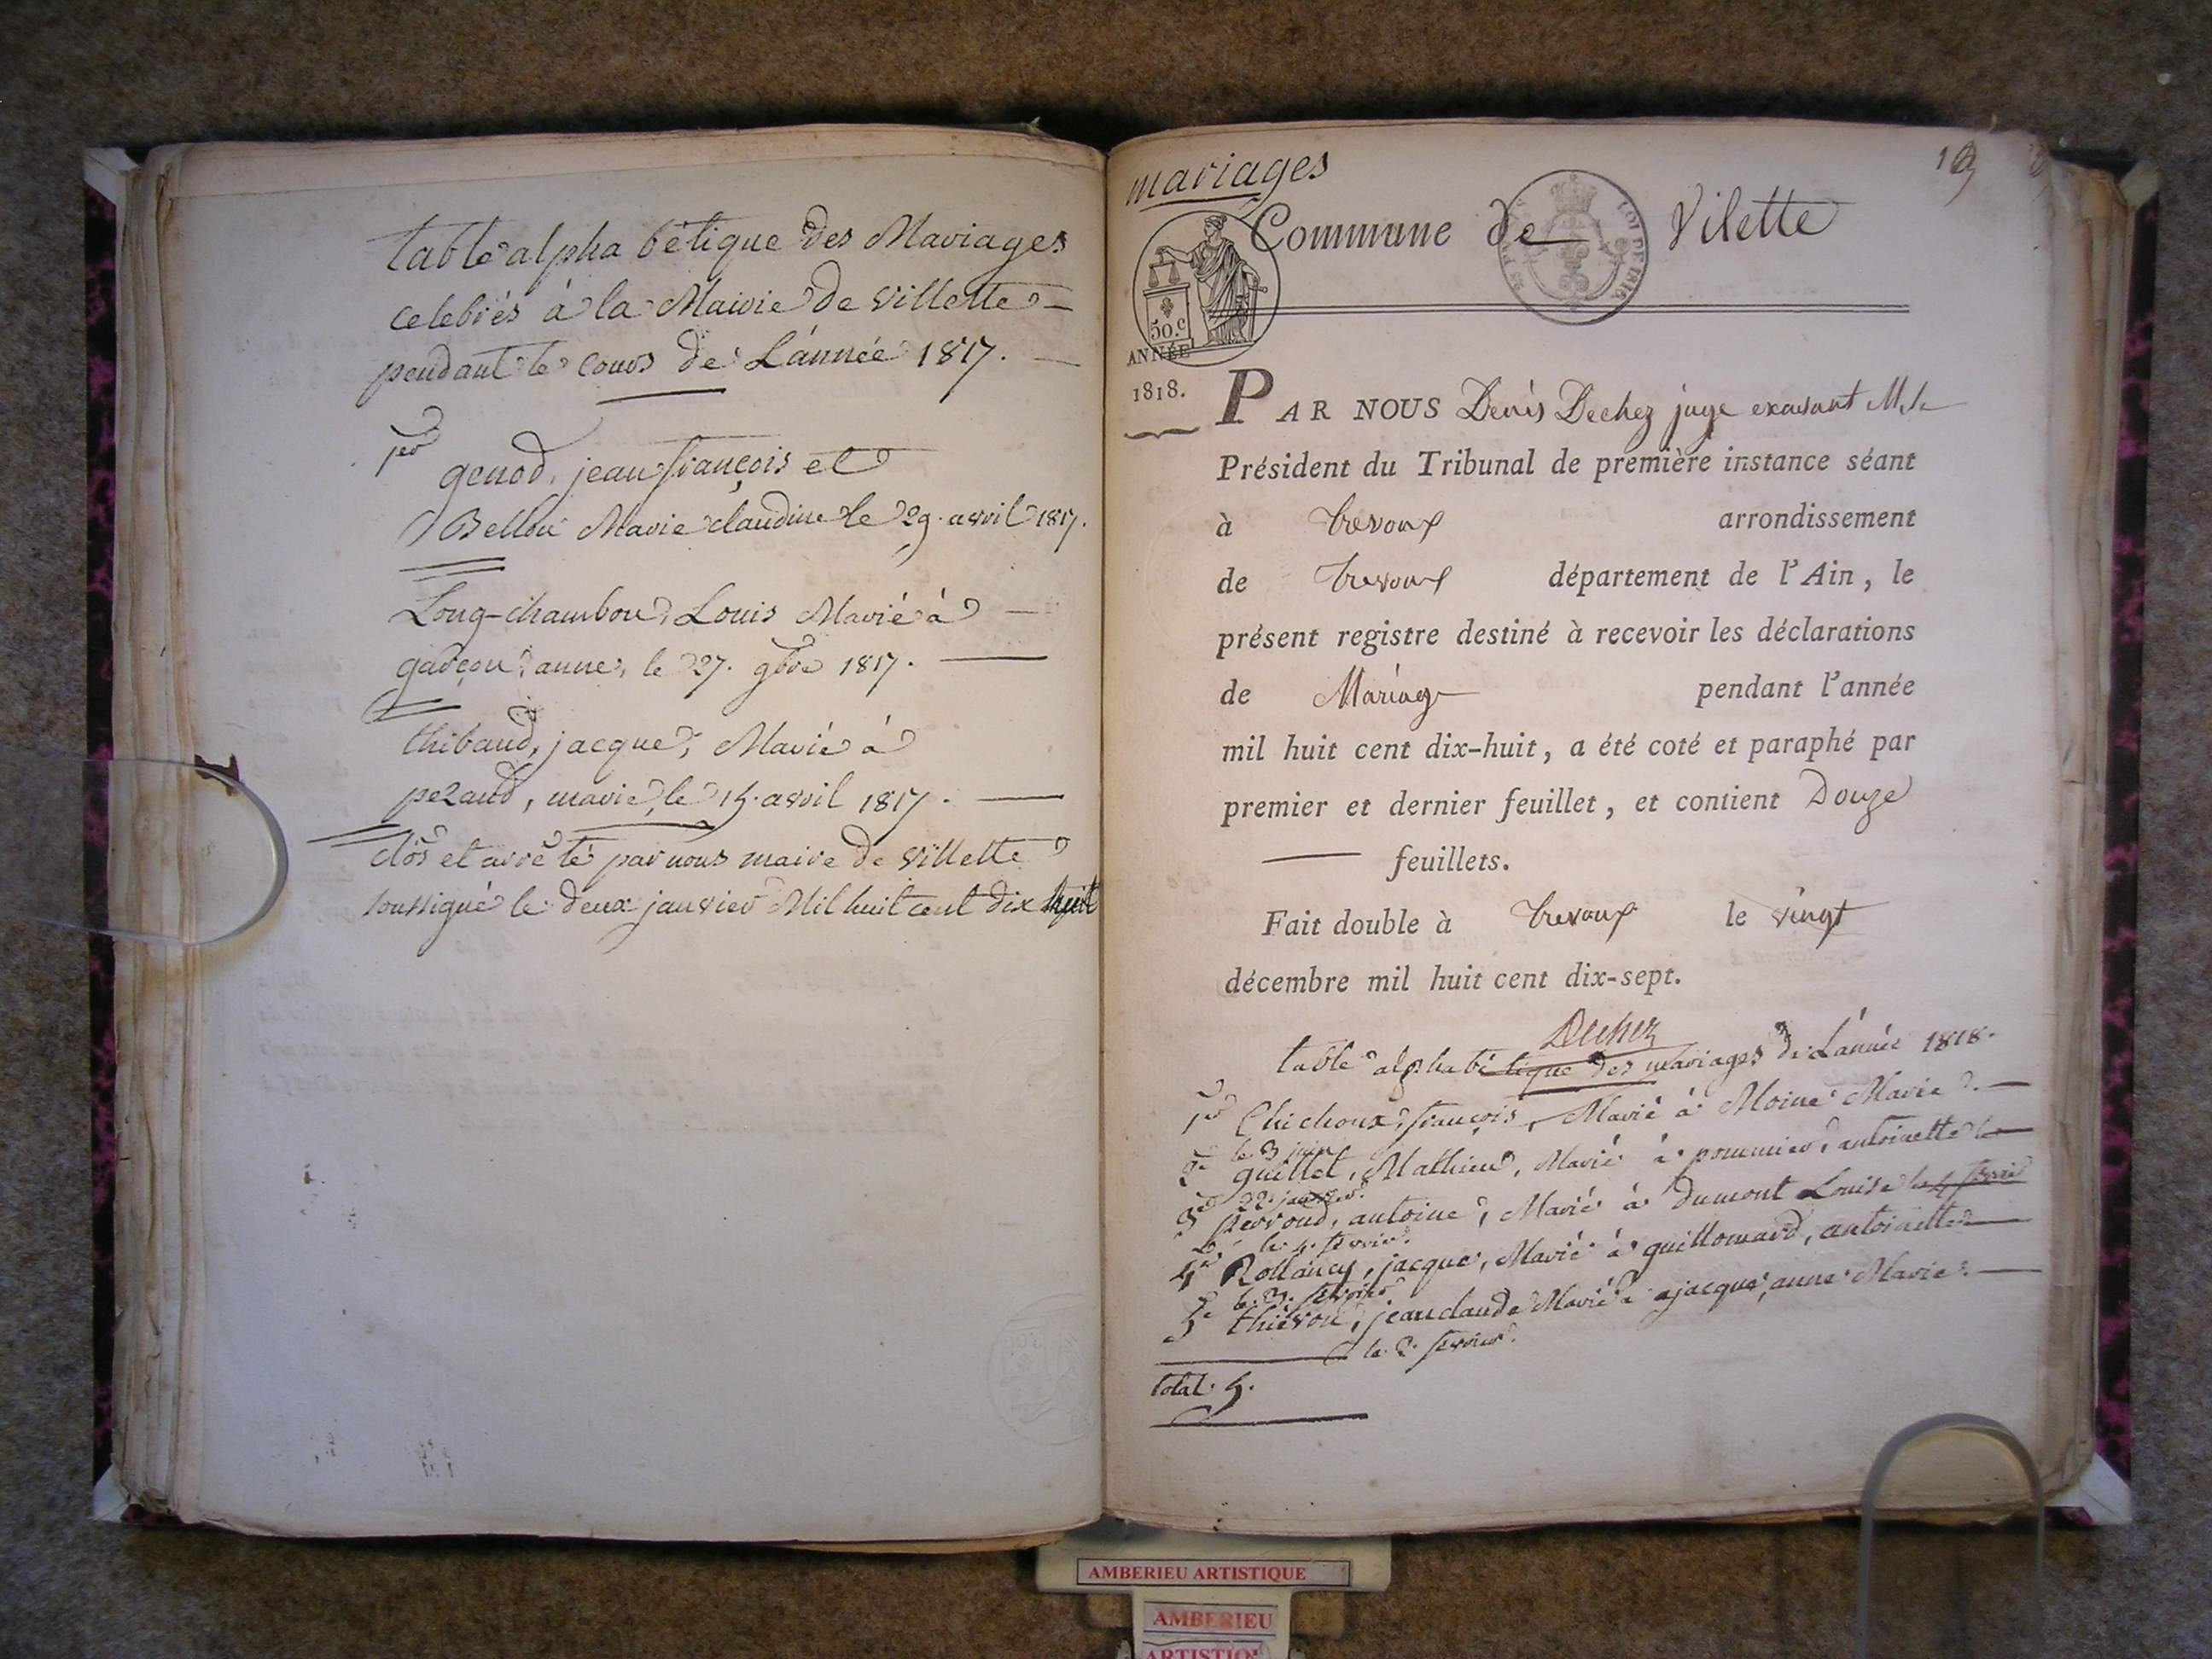 table alphabétique des Mariages
celebrés à la Mairie de villette
pendant le cours de L'année 1817.
1er
genod, jean françois et
Bellou Marie claudine le 29. avril 1817.
Long-chambon, Louis Marié à
garçon, anne, le 27. 9bre 1817.
thibaud, jacque, Marié à
pezaud, marie, le 15. avril 1817.
clôs et arrêté par nous maire de villette
soussigné le deux janvier Mil huit cent dix huit
mariages
Commune de Vilette
50.c
ANNÉE
1818.
PAR NOUS Denis Dechez juge exerçant Mr le
Président du Tribunal de première instance séant
à Trevoux arrondissement
de Trevoux département de l'Ain, le
présent registre destiné à recevoir les déclarations
de Mariage pendant l'année
mil huit cent dix-huit, a été coté et paraphé par
premier et dernier feuillet, et contient Douze
feuillets.
Fait double à Trevoux le vingt
décembre mil huit cent dix-sept.
Dechez
table alphabétique des mariages de L'année 1818.
1er Chichoux, françois, Marié à Moine Marie.
le 3 juin
2e guillet, Mathieu, Marié à pommier, antoinette le
22. janvier.
3e perroud, antoine, Marié à dumont Louise le 4 fevrier
le 4. fevrier.
4e Rollancy, jacque, Marié à guillomard, antoinette
le 3. fevrier
5e thievon, jean claude Marié à ajacque, anne Marie.
le 2. fevrier.
total. 5.
AMBERIEU ARTISTIQUE
AMBERIEU
ARTISTIQ